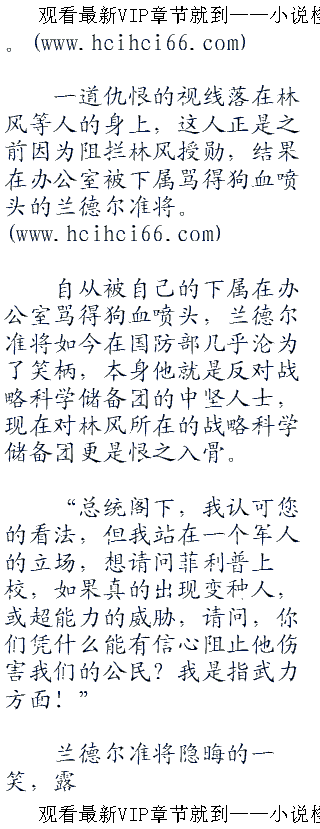 观看最新VIP章节就到——小说
。(www.hcihci66.com)
一道仇恨的视线落在林
风等人的身上，这人正是之
前因为阻拦林风授勋，结果
在办公室被下属骂得狗血喷
头的兰德尔准将。
(www.hcihci66.com)
自从被自己的下属在办
公室骂得狗血喷头，兰德尔
准将如今在国防部几乎沦为
了笑柄，本身他就是反对战
略科学储备团的中坚人士，
现在对林风所在的战略科学
储备团更是恨之入骨。
“总统阁下，我认可您
的看法，但我站在一个军人
的立场，想请问菲利普上
校，如果真的出现变种人，
或超能力的威胁，请问，你
们凭什么能有信心阻止他伤
害我们的公民？我是指武力
方面！”
兰德尔准将隐晦的一
笑，露
观看最新VIP章节就到——小说